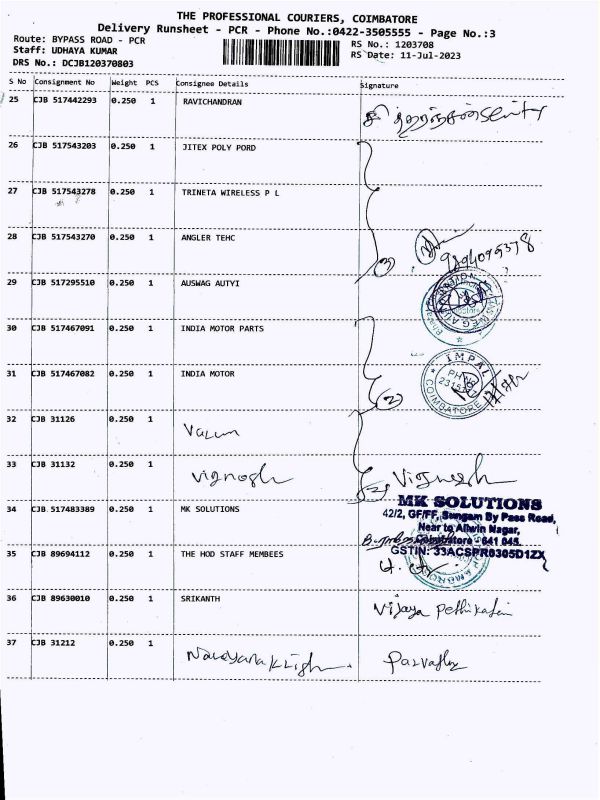 THE PROFESSIONAL COURIERS, COIMBATORE
Delivery Runsheet - PCR - Phone No.:0422-3505555 - Page No.:3
Route: BYPASS ROAD - PCR
RS No.: 1203708
Staff: UDHAYA KUMAR
RS Date: 11-Jul-2023
DRS No.: DCJB120370803
S No Consignment No Weight PCS Consignee Details Signature
25 CJB 517442293 0.250 1 RAVICHANDRAN
26 CJB 517543203 0.250 1 JITEX POLY PORD
27 CJB 517543278 0.250 1 TRINETA WIRELESS P L
28 CJB 517543270 0.250 1 ANGLER TEHC
(3) 9894099378
29 CJB 517295510 0.250 1 AUSWAG AUTYI
30 CJB 517467091 0.250 1 INDIA MOTOR PARTS
31 CJB 517467082 0.250 1 INDIA MOTOR
IMPAL
COIMBATORE
(2)
32 CJB 31126 0.250 1 Varun
33 CJB 31132 0.250 1 Vignesh Vignesh
34 CJB 517483389 0.250 1 MK SOLUTIONS
MK SOLUTIONS
42/2, GF/FF, Sungam By Pass Road,
Near to Allwin Nagar,
Coimbatore - 641 045.
GSTIN: 33ACSPR0305D1ZX
35 CJB 89694112 0.250 1 THE HOD STAFF MEMBEES
36 CJB 89630010 0.250 1 SRIKANTH Vijaya
37 CJB 31212 0.250 1